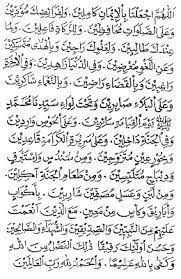 اَللّٰهُمَّ اجْعَلْنَا بِالْإِيْمَانِ كَامِلِيْنَ وَلِفَرَائِضِكَ مُؤَدِّيْنَ
وَعَلَى الصَّلَوَاتِ مُحَافِظِيْنَ وَلِلزَّكَاةِ فَاعِلِيْنَ وَلِمَا
عِنْدَكَ طَالِبِيْنَ وَلِعَفْوِكَ رَاجِيْنَ وَبِالْهُدَى مُتَمَسِّكِيْنَ
وَعَنِ اللَّغْوِ مُعْرِضِيْنَ وَفِى الدُّنْيَا زَاهِدِيْنَ وَفِى الْآخِرَةِ
رَاغِبِيْنَ وَبِالْقَضَاءِ رَاضِيْنَ وَبِالنَّعْمَاءِ شَاكِرِيْنَ
وَعَلَى الْبَلَاءِ صَابِرِيْنَ وَتَحْتَ لِوَاءِ سَيِّدِنَا مُحَمَّدٍ
سَائِرِيْنَ وَعَلَى الْحَوْضِ وَارِدِيْنَ
وَفِى الْجَنَّةِ دَاخِلِيْنَ وَعَلَى سَرِيْرِ الْكَرَامَةِ قَاعِدِيْنَ
مِنْ سُنْدُسٍ وَاِسْتَبْرَقٍ
وَدِيْبَاجٍ مُتَلَبِّسِيْنَ وَمِنْ طَعَامِ الْجَنَّةِ آكِلِيْنَ
وَمِنْ لَبَنٍ وَعَسَلٍ مُصَفَّيْنِ شَارِبِيْنَ بِأَكْوَابٍ
وَأَبَارِيْقَ وَكَأْسٍ مِنْ مَعِيْنٍ مَعَ الَّذِيْنَ أَنْعَمْتَ
عَلَيْهِمْ مِنَ النَّبِيِّيْنَ وَالصِّدِّيْقِيْنَ وَالشُّهَدَاءِ وَالصَّالِحِيْنَ
وَحَسُنَ أُولٰئِكَ رَفِيْقًا ذٰلِكَ الْفَضْلُ مِنَ اللهِ
وَكَفَى بِاللهِ عَلِيْمًا وَالْحَمْدُ لِلّٰهِ رَبِّ الْعَالَمِيْنَ